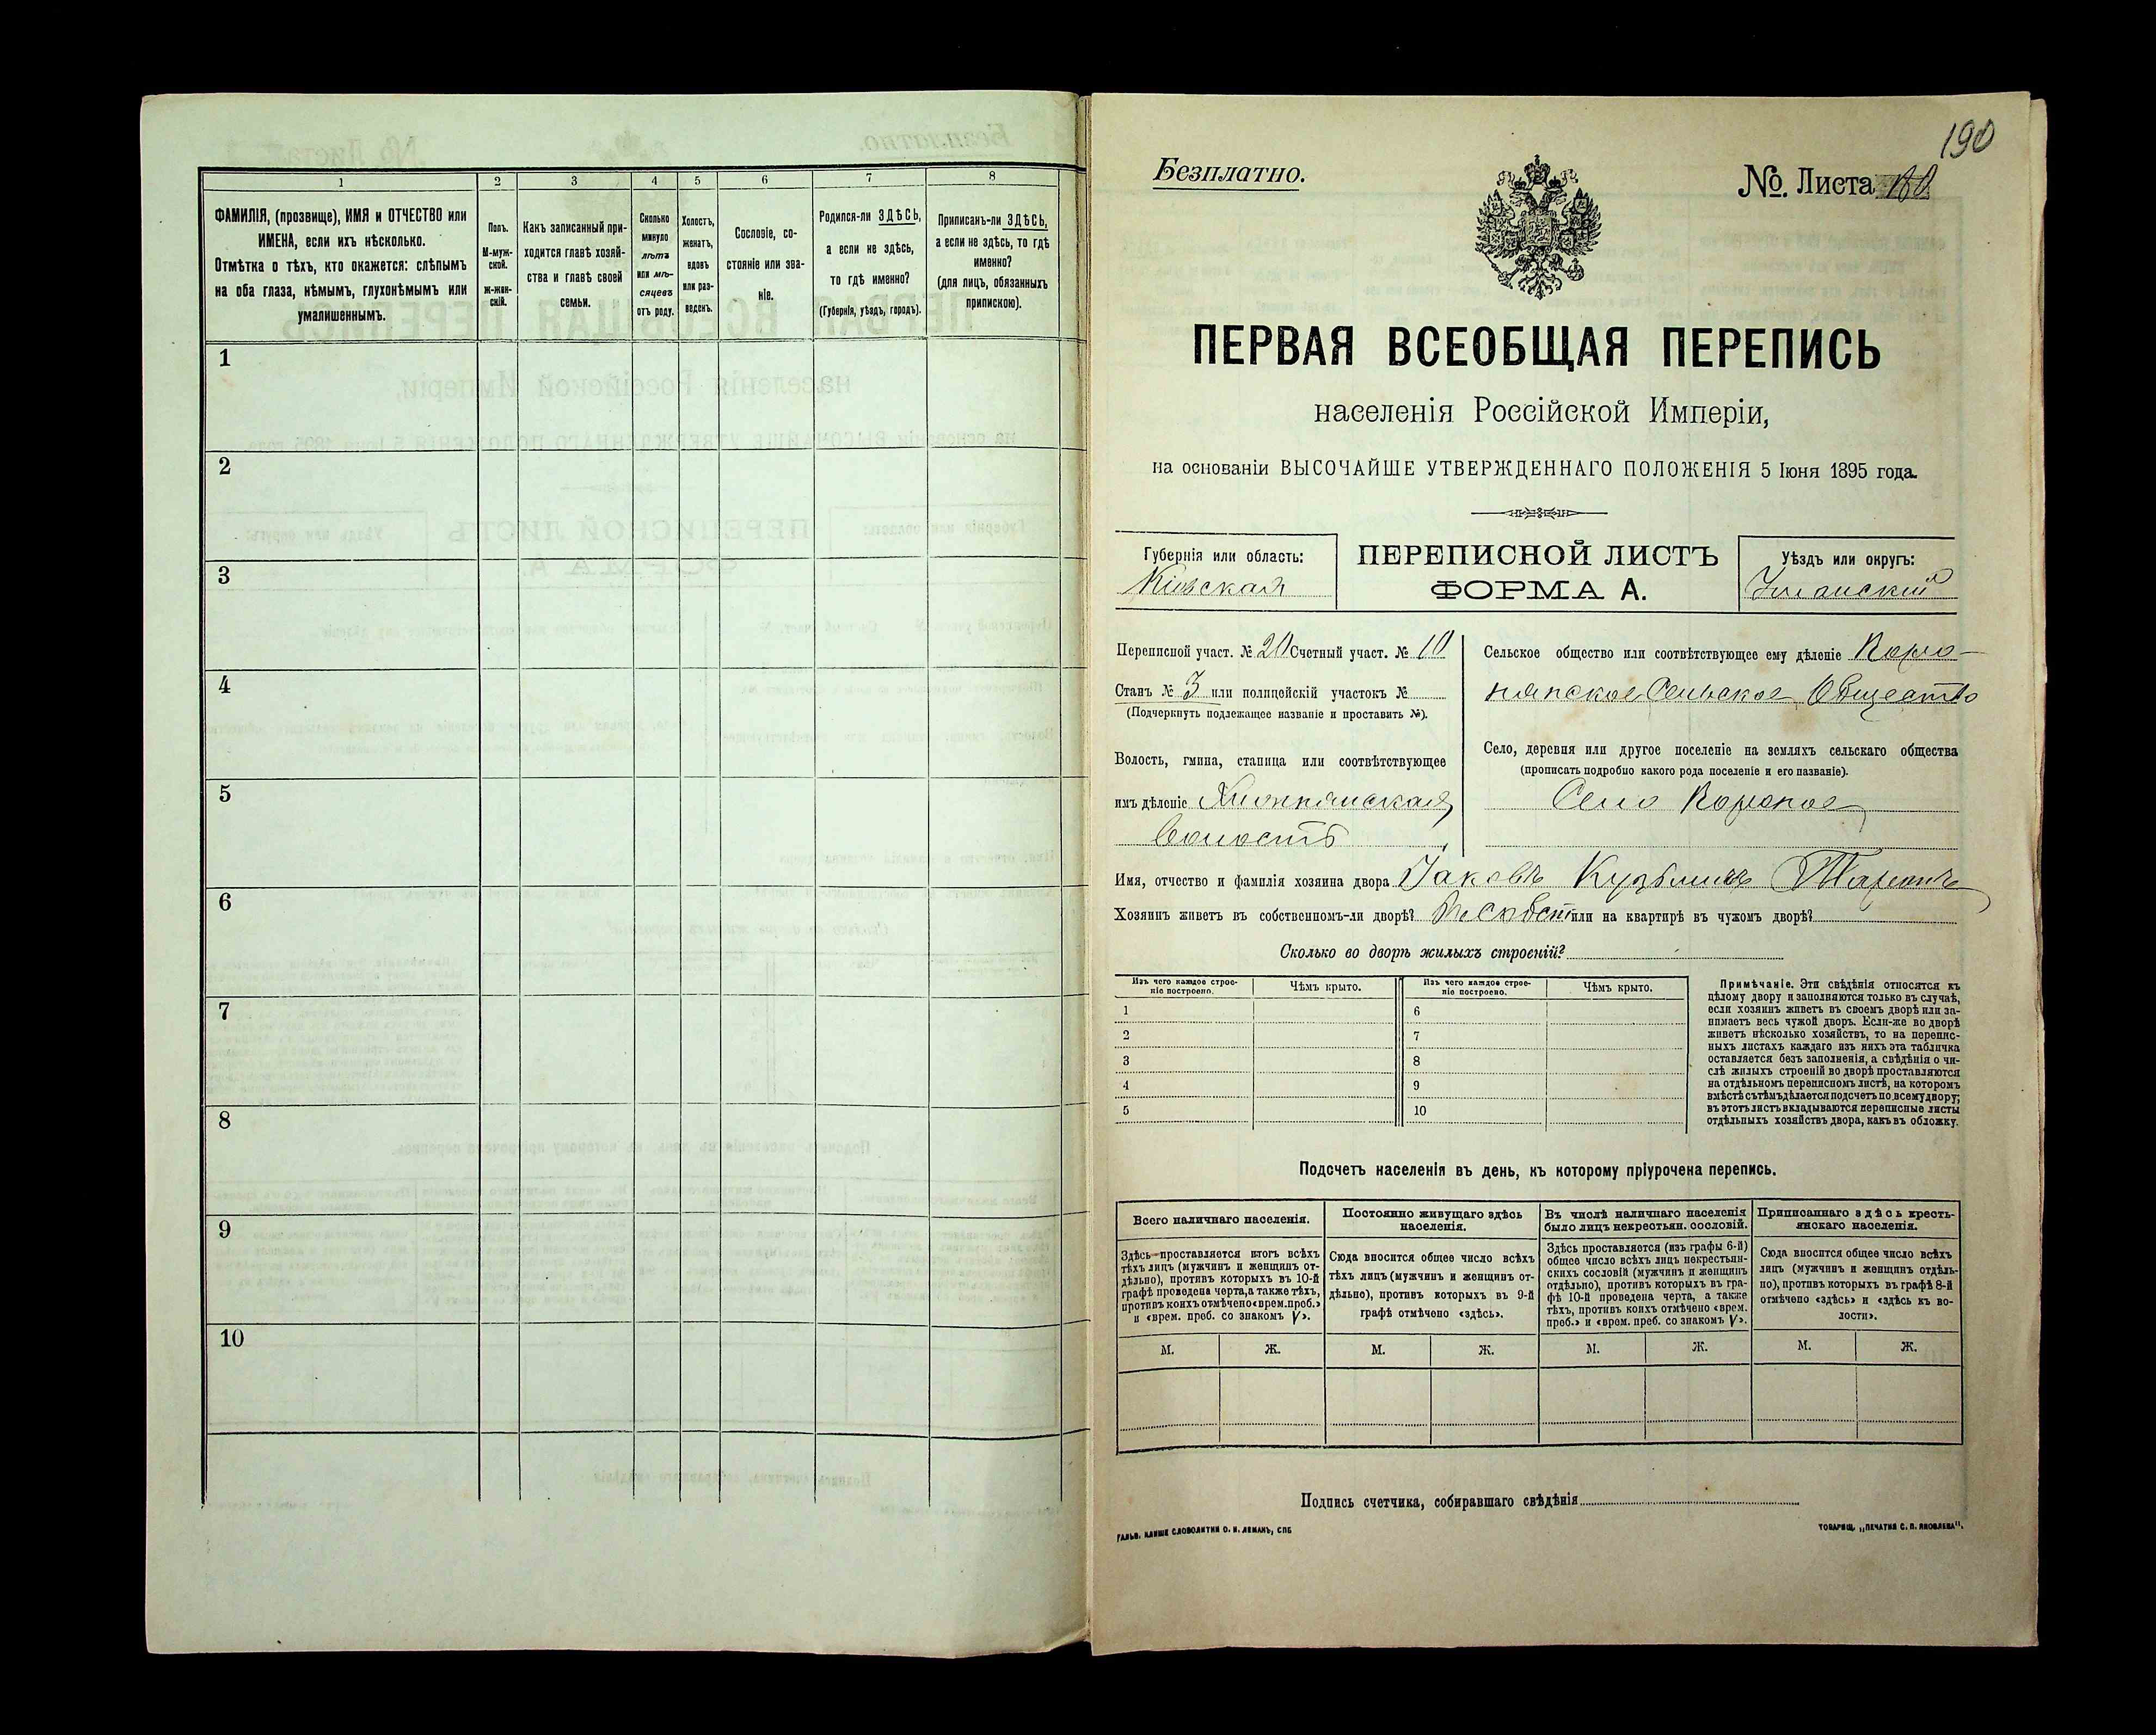 1
2
3
4
5
6
7
8
ФАМИЛІЯ, (прозвище), ИМЯ и ОТЧЕСТВО или
ИМЕНА, если ихъ нѣсколько.
Отмѣтка о тѣхъ, кто окажется: слѣпымъ
на оба глаза, нѣмымъ, глухонѣмымъ или
умалишеннымъ.
Полъ.
М-муж-
ской.
ж-жен-
скій.
Какъ записанный при-
ходится главѣ хозяй-
ства и главѣ своей
семьи.
Сколько
минуло
лѣтъ
или мѣ-
сяцевъ
отъ роду.
Холостъ,
женатъ,
вдовъ
или раз-
веденъ.
Сословіе, со-
стояніе или зва-
ніе.
Родился-ли ЗДѢСЬ,
а если не здѣсь,
то гдѣ именно?
(Губернія, уѣздъ, городъ).
Приписанъ-ли ЗДѢСЬ,
а если не здѣсь, то гдѣ
именно?
(для лицъ, обязанныхъ
припискою).
1
2
3
4
5
6
7
8
9
10
190
Безплатно.
№. Листа
ПЕРВАЯ ВСЕОБЩАЯ ПЕРЕПИСЬ
населенія Россійской Имперіи,
на основаніи ВЫСОЧАЙШЕ УТВЕРЖДЕННАГО ПОЛОЖЕНІЯ 5 Іюня 1895 года.
Губернія или область:
Кіевская
ПЕРЕПИСНОЙ ЛИСТЪ
ФОРМА А.
Уѣздъ или округъ:
Уманскій
Переписной участ. № 20 Счетный участ. № 10
Станъ № 3 или полицейскій участокъ №
(Подчеркнуть подлежащее названіе и проставить №).
Волость, гмина, станица или соотвѣтствующее
имъ дѣленіе
волость
Сельское общество или соотвѣтствующее ему дѣленіе
Сельское Общество
Село, деревня или другое поселеніе на земляхъ сельскаго общества
(прописать подробно какого рода поселеніе и его названіе).
Село
Имя, отчество и фамилія хозяина двора Іаковъ
Хозяинъ живетъ въ собственномъ-ли дворѣ? или на квартирѣ въ чужомъ дворѣ?
Сколько во дворѣ жилыхъ строеній?
Изъ чего каждое строе-
ніе построено.
Чѣмъ крыто.
Изъ чего каждое строе-
ніе построено.
Чѣмъ крыто.
1
6
2
7
3
8
4
9
5
10
Примѣчаніе. Эти свѣдѣнія относятся къ
цѣлому двору и заполняются только въ случаѣ,
если хозяинъ живетъ въ своемъ дворѣ или за-
нимаетъ весь чужой дворъ. Если-же во дворѣ
живетъ нѣсколько хозяйствъ, то на перепис-
ныхъ листахъ каждаго изъ нихъ эта табличка
оставляется безъ заполненія, а свѣдѣнія о чи-
слѣ жилыхъ строеній во дворѣ проставляются
на отдѣльномъ переписномъ листѣ, на которомъ
вмѣстѣ съ тѣмъ дѣлается подсчетъ по всему двору;
въ этотъ листъ вкладываются переписные листы
отдѣльныхъ хозяйствъ двора, какъ въ обложку.
Подсчетъ населенія въ день, къ которому пріурочена перепись.
Всего наличнаго населенія.
Постоянно живущаго здѣсь
населенія.
Въ числѣ наличнаго населенія
было лицъ некрестьян. сословій.
Приписаннаго здѣсь кресть-
янскаго населенія.
Здѣсь проставляется итогъ всѣхъ
тѣхъ лицъ (мужчинъ и женщинъ от-
дѣльно), противъ которыхъ въ 10-й
графѣ проведена черта, а также тѣхъ,
противъ коихъ отмѣчено «врем. проб.»
и «врем. преб. со знакомъ V».
Сюда вносится общее число всѣхъ
тѣхъ лицъ (мужчинъ и женщинъ от-
дѣльно), противъ которыхъ въ 9-й
графѣ отмѣчено «здѣсь».
Здѣсь проставляется (изъ графы 6-й)
общее число всѣхъ лицъ некрестьян-
скихъ сословій (мужчинъ и женщинъ
отдѣльно), противъ которыхъ въ гра-
фѣ 10-й проведена черта, а также
тѣхъ, противъ коихъ отмѣчено «врем.
преб.» и «врем. преб. со знакомъ V».
Сюда вносится общее число всѣхъ
лицъ (мужчинъ и женщинъ отдѣль-
но), противъ которыхъ въ графѣ 8-й
отмѣчено «здѣсь» и «здѣсь къ во-
лости».
М.
Ж.
М.
Ж.
М.
Ж.
М.
Ж.
Подпись счетчика, собиравшаго свѣдѣнія
ГАЛЬВ. КЛИШЕ СЛОВОЛИТНИ О. И. ЛЕМАНЪ, СПБ
ТОВАРИЩ. „ПЕЧАТНЯ С. П. ЯКОВЛЕВА".